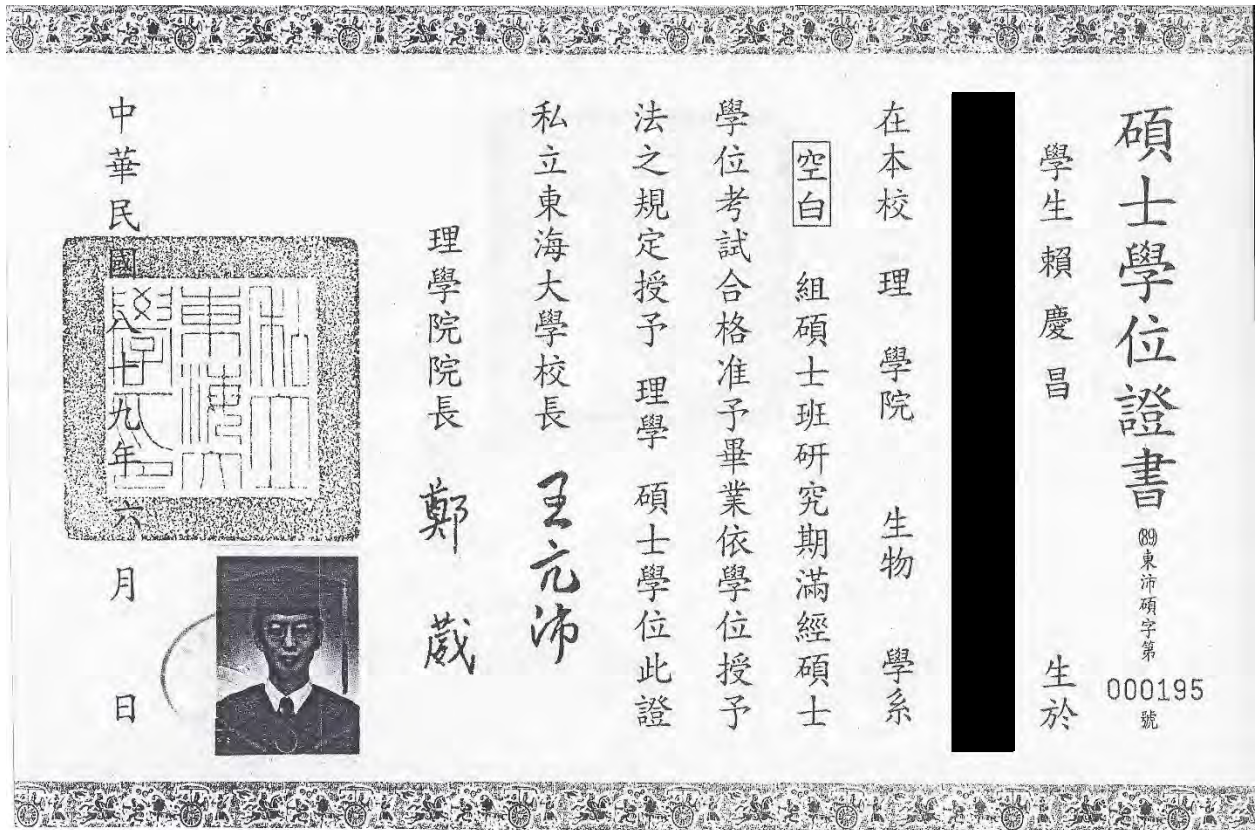 碩士學位證書
(89)東沛碩字第000195號
學生賴慶昌 生於
在本校 理 學院 生物 學系
空白 組碩士班研究期滿經碩士
學位考試合格准予畢業依學位授予
法之規定授予 理學 碩士學位此證
私立東海大學校長 王亢沛
理學院院長 鄭葳
中華民國八十九年六月 日
私立
東海大
學印